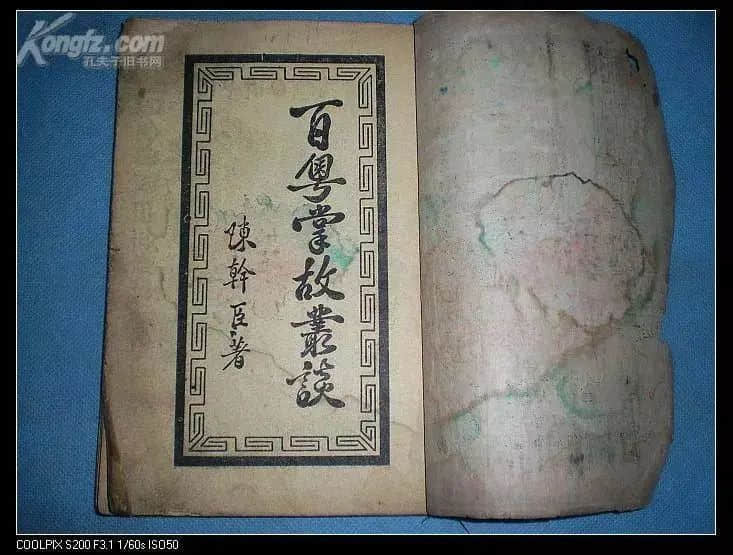 Kongfz.com
孔夫子旧书网
百粵掌故叢談
陳幹臣著
COOLPIX S200 F3.1 1/60s ISO50